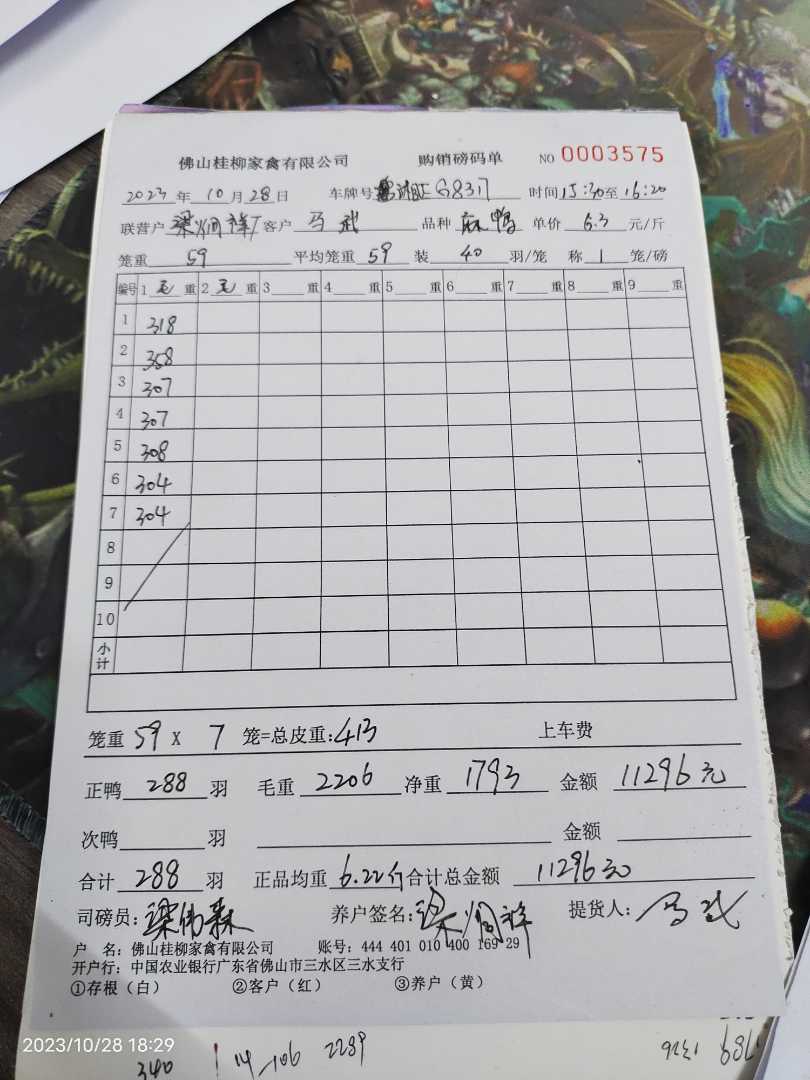 佛山桂柳家禽有限公司 购销磅码单 NO 0003575
2023 年 10 月 28 日 车牌号 G8317 时间 15:30 至 16:20
联营户 梁炯祥 客户 马武 品种 麻鸭 单价 6.3 元/斤
笼重 59 平均笼重 59 装 40 羽/笼 称 1 笼/磅
编号 1 毛 重 2 毛 重 3 重 4 重 5 重 6 重 7 重 8 重 9 重
1 318
2 358
3 307
4 307
5 308
6 304
7 304
8
9
10
小计
笼重 59 X 7 笼=总皮重: 413 上车费
正鸭 288 羽 毛重 2206 净重 1793 金额 11296元
次鸭 羽 金额
合计 288 羽 正品均重 6.22斤 合计总金额 11296元
司磅员: 梁伟森 养户签名: 梁炯祥 提货人: 马武
户 名: 佛山桂柳家禽有限公司 账号: 444 401 010 400 169 29
开户行: 中国农业银行广东省佛山市三水区三水支行
①存根（白） ②客户（红） ③养户（黄）
2023/10/28 18:29
340 14-106 2289